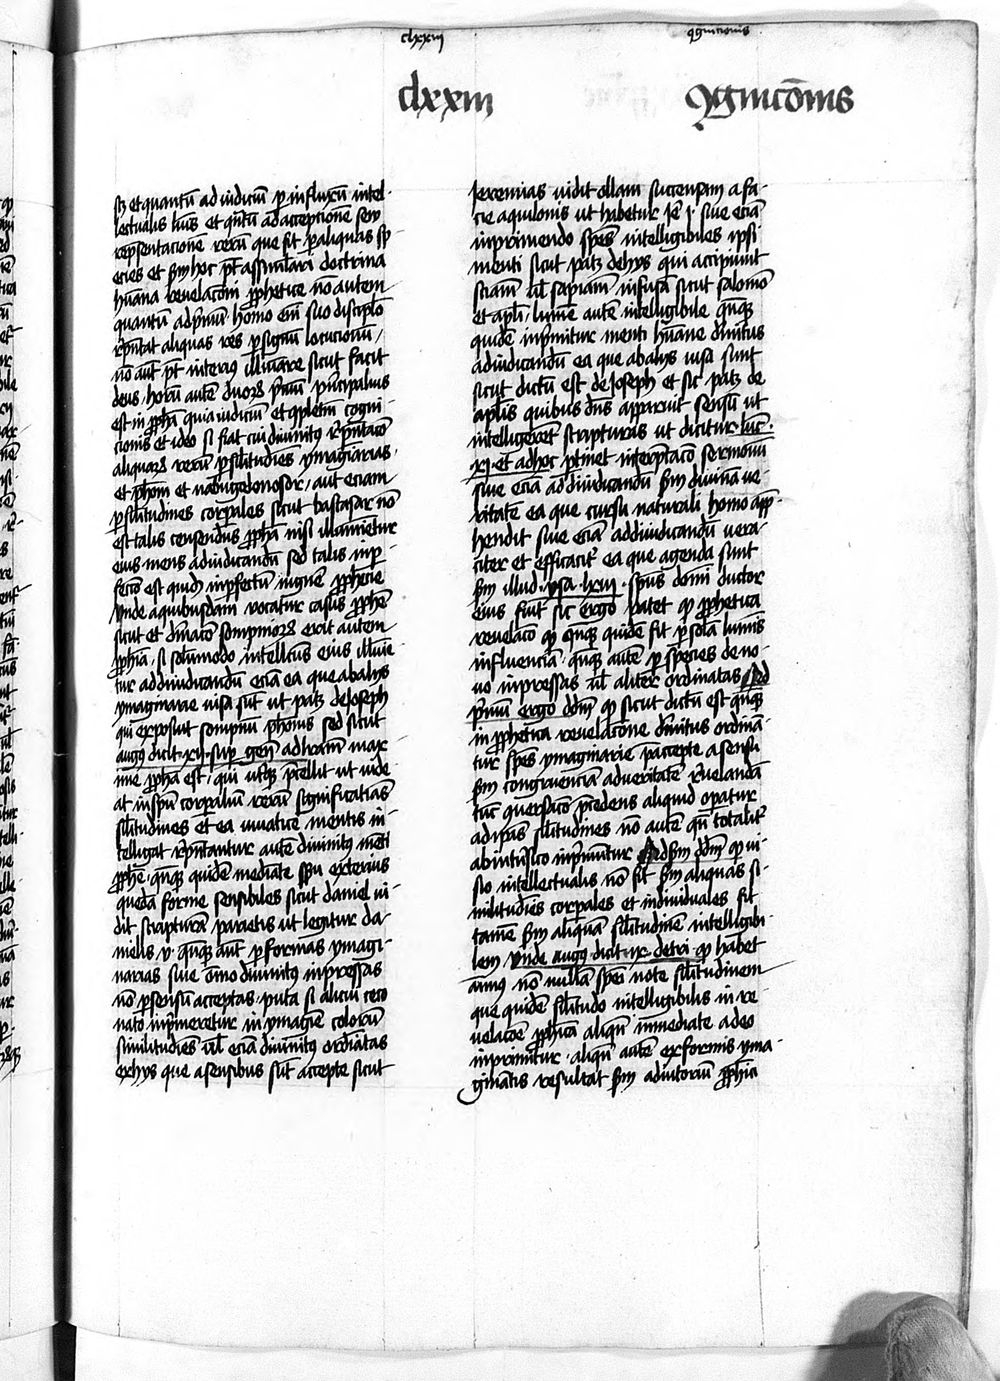 clxxiii
cognicionis
clxxiii
ꝯgnicōnis
sꝫ et quantū ad iudiciū ꝑ influxū intel-
lectualis luīs et qntū ad acceptionē seu
rep̄sentacionē rerū que fit ꝑ aliquas sp-
ecies et scdm hoc pt̄ assimilari doctrina
humana reuelacōni ꝓphetice nō autem
quantū ad p̄mū homo em̄ suo discipulo
rep̄ntat aliquas res ꝑ signū locucionū
nō aut pt̄ interius illuminare sicut facit
deus horū autē duorū p̄mū principalius
est in ꝓphīa quia iudiciū est ꝯpletiū cogni-
cionis et ideo si fiat cui diuinitus rep̄ntacō
aliquarū rerū ꝑ similitudies ymaginarias
ut pharaoni et nabugodonosor aut eciam
ꝑ similitudines corporales sicut baltasar nō
est talis censendus ꝓpha nisi illuminetur
eius mens ad iudicandū sed talis inper-
fectū est quid inperfectū in genere ꝓphecie
Unde a quibusdam vocatur casus ꝓphecie
sicut et diuinacō sompniorū erit autem
ꝓpheta si solūmodo intellectus eius illumie-
tur ad diiudicandū eciā ea que ab aliis
ymaginarie visa sunt ut patꝫ de Joseph
qui exposuit sompniū pharaonis sed sicut
augus dicit xii sup gen ad litteram max-
ime ꝓpha est qui utroque p̄cellit ut vide-
at in spiritu corporaliū rerū significatiuas
similitudines et ea viuacitate mentis in-
telligat rep̄ntantur autē diuinitus menti
ꝓphe quandoque quidem mediante sensu exterius
quedā forme sensibiles sicut daniel vi-
dit scripturā parietis ut legitur da-
nielis v quandoque aut ꝑ formas ymagi-
narias siue omnino diuinitus inpressas
nō ꝑ sensum acceptas puta si alicui ceco
nato inprimeretur in ymagine colorum
similitudies vel eciā diuinitus ordinatas
ex hys que a sensibus sunt accepte sicut
Jeremias vidit ollam succensam a fa-
cie aquilonis ut habetur Je i siue eciā
inprimendo species intelligibiles ipsi
menti sicut patꝫ de hys qui accipiunt
scienciam vel sapienciam infusam sicut salomō
et apostoli lumen autē intelligibile quandoque
quidē inprimitur menti humane diuinitus
ad iudicandū ea que ab aliis visa sunt
sicut dictū est de Joseph et sic patꝫ de
apostolis quibus dominus apparuit sensum ut
intelligerent scripturas ut dicitur luc
xi et ad hoc ptinet interptacō sermonū
siue eciā ad diiudicandū scdm diuinā ve-
ritatē ea que cursu naturali homo app-
hendit siue eciā ad diiudicandū vera-
citer et efficacit ea que agenda sunt
scdm illud ysa lxiii spiritus domini ductor
eius fuit sic ergo patet quod ꝓphetica
reuelacō quandoque quidē fit ꝑ solam luminis
influenciā quandoque autē ꝑ species de no-
uo inpressas vel aliter ordinatas Ad
p̄mū ergo dicendum quod sicut dictū est quandoque
in ꝓphetica reuelacione diuinitus ordinā-
tur species ymaginarie paccepte a sensu
scdm congruenciā ad veritatē reuelandā
tunc conuersacō precedens aliquid operatur
ad ipsas similitudines nō autē quando totaliter
ab intrinseco inprimuntur Ad scdm dicendum quod vi-
sio intellectualis nō fit scdm aliquas si-
militudies corporales et indiuiduales fit
tamē scdm aliquā similitudinē intelligibi-
lem Unde augus dicit ix de tri quod habet
animus nō nullā speciei note similitudinem
que quidē similitudo intelligibilis in re-
uelacōe ꝓphetica aliquando inmediate a deo
inprimitur aliquando autē ex formis yma-
ginatis resultat scdm adiutoriū ꝓphetici